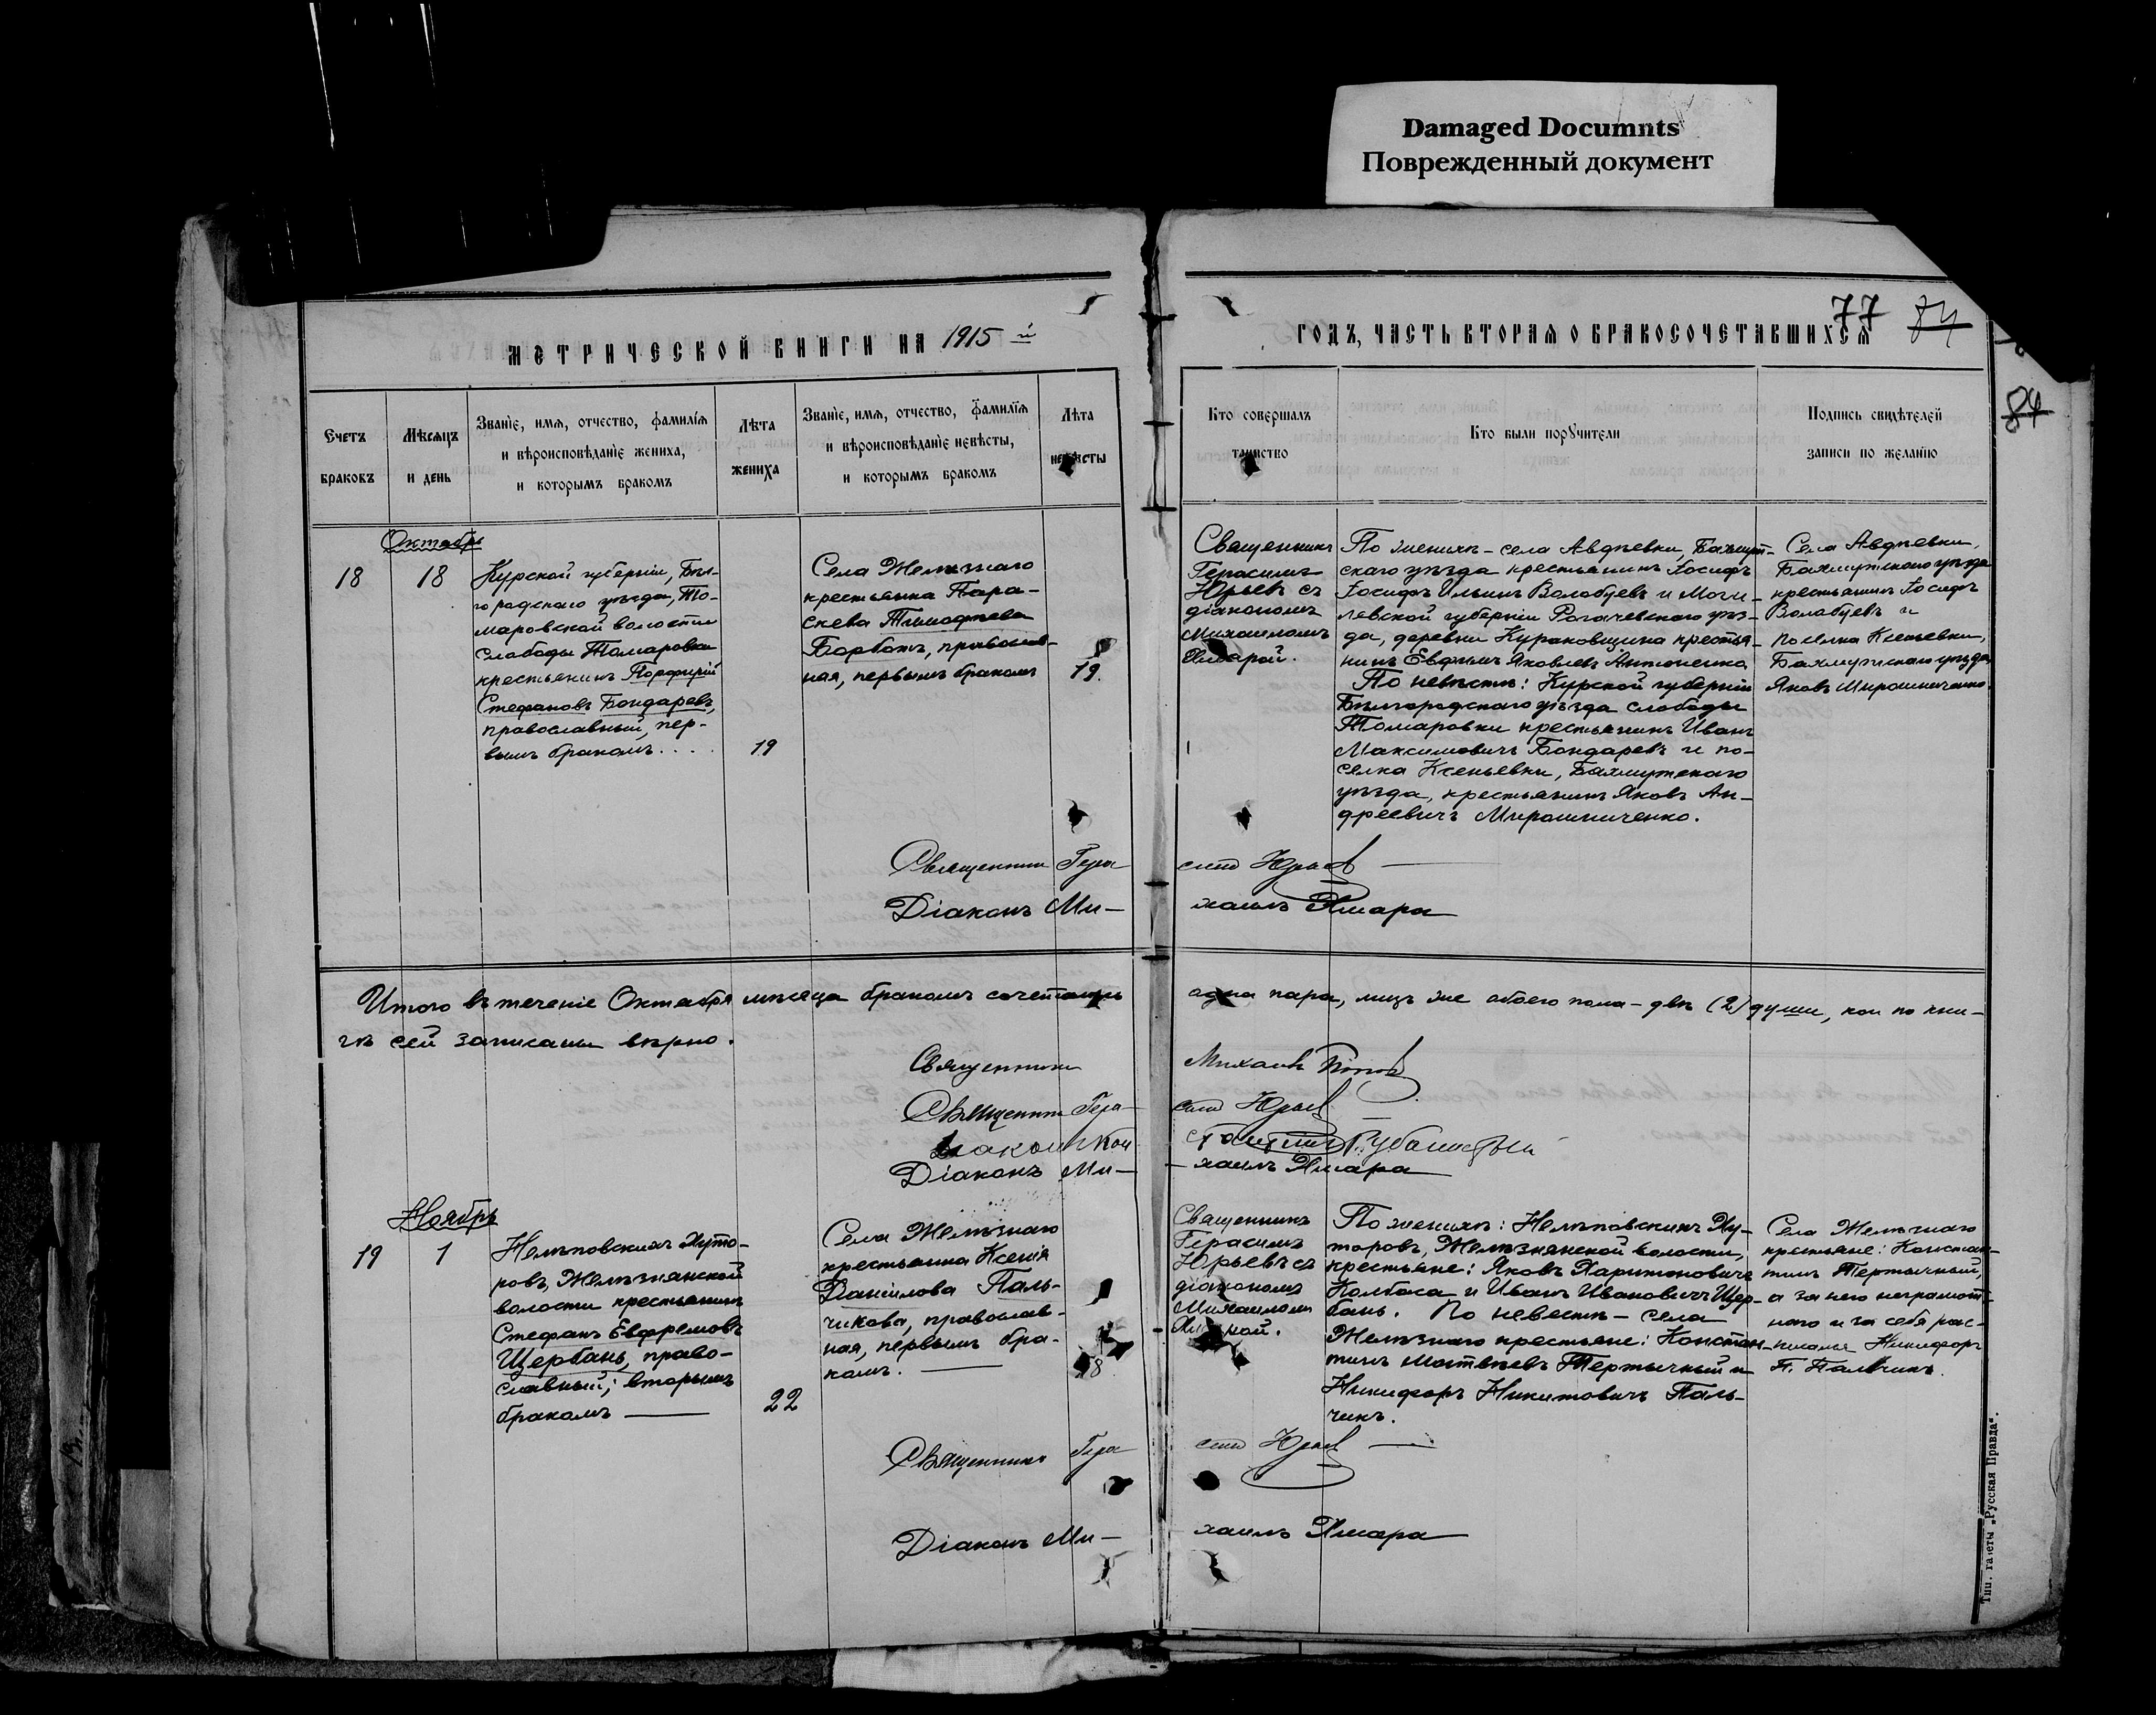 Damaged Documnts
Поврежденный документ
77 84
84
МЕТРИЧЕСКОЙ КНИГИ НА 1915 й
ГОДЪ, ЧАСТЬ ВТОРАЯ О БРАКОСОЧЕТАВШИХСЯ
Счетъ
браковъ
Мѣсяцъ
и день
Званіе, имя, отчество, фамилія
и вѣроисповѣданіе жениха,
и которымъ бракомъ
Лѣта
жениха
Званіе, имя, отчество, фамилія
и вѣроисповѣданіе невѣсты,
и которымъ бракомъ
Лѣта
невѣсты
Кто совершалъ
таинство
Кто были поручители
Подпись свидѣтелей
записи по желанію
Октябрь
18
18
Курской губерніи, Бѣл-
городскаго уѣзда, То-
маровской волости
слободы Томаровки
крестьянинъ Порфирій
Стефановъ Бондаревъ,
православный, пер-
вымъ бракомъ....
19
Села Желѣзнаго
крестьянка Пара-
скева Тимофѣева
Борботъ, православ-
ная, первымъ бракомъ
19.
Священникъ
Герасимъ
Юрьевъ съ
діакономъ
Михаиломъ
Хмарой.
По женихѣ - села Авдѣевки, Бахмут-
скаго уѣзда крестьянинъ Іосифъ
Іосифъ Ильинъ Волобуевъ и Моги-
левской губерніи Рогачевскаго уѣз-
да, деревни Кураковщина крестья-
нинъ Евфимъ Яковлевъ Антоненко
По невѣстѣ: Курской губерніи
Бѣлгородскаго уѣзда слободы
Томаровки крестьянинъ Иванъ
Максимовичъ Бондаревъ и по-
селка Ксеньевки, Бахмутскаго
уѣзда, крестьянинъ Яковъ Ан-
дреевичъ Мирошниченко.
Села Авдѣевки,
Бахмутскаго уѣзда
крестьянинъ Іосифъ
Волобуевъ и
поселка Ксеньевки,
Бахмутскаго уѣзда
Яковъ Мирошниченко.
Священникъ Герасимъ Юрьевъ
Діаконъ Ми-хаилъ Хмара
Итого въ теченіе Октября мѣсяца бракомъ сочеталась одна пара, лицъ же обоего пола - двѣ (2) души, кои по кни-
гѣ сей записаны вѣрно.
Священникъ Михаилъ Поповъ
Священникъ Герасимъ Юрьевъ
Діаконъ Константинъ
Діаконъ Ми-хаилъ Хмара
Ноябрь
19
1
Нелѣповскихъ Хуто-
ровъ, Желѣзнянской
волости крестьянинъ
Стефанъ Евфремовъ
Щербань, право-
славный; вторымъ
бракомъ
22
Села Желѣзнаго
крестьянка Ксенія
Даніилова Паль-
чикова, православ-
ная, первымъ бра-
комъ.
18
Священникъ
Герасимъ
Юрьевъ съ
діакономъ
Михаиломъ
Хмарой.
По женихѣ: Нелѣповскихъ Ху-
торовъ, Желѣзнянской волости,
крестьяне: Яковъ Харитоновичъ
Колбаса и Иванъ Ивановичъ Щер-
бань. По невѣстѣ - села
Желѣзнаго крестьяне: Констан-
тинъ Матвѣевъ Тертычный и
Никифоръ Никитовичъ Паль-
чикъ.
Села Желѣзнаго
крестьяне: Констан-
тинъ Тертычный,
а за него неграмот-
наго и за себя рас-
писался Никифоръ
Н. Пальчикъ.
Священникъ Герасимъ Юрьевъ
Діаконъ Ми-хаилъ Хмара
Тип. газеты „Русская Правда".